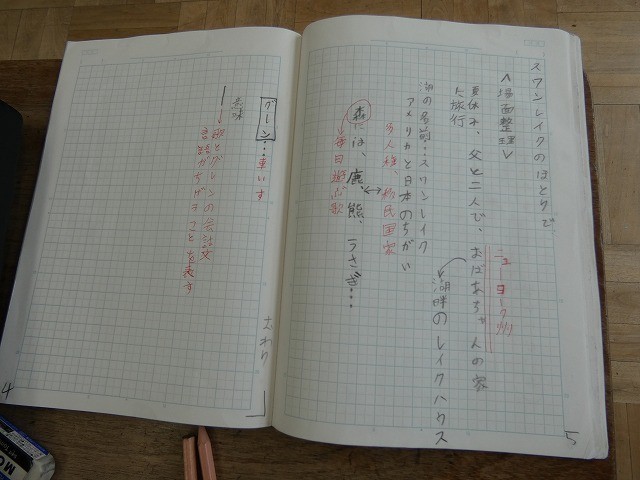 スワンレイクのほとりで
<場面整理>
ニューヨーク州
夏休み、父と二人で、おばあちゃんの家
に旅行
湖畔のレイクハウス
湖の名前…スワンレイク
アメリカと日本のちがい
多人種、移民国家
森には、鹿、熊、うさぎ…
毎日
5
おわり
グレン…車いす
意味
歌とグレンの会話文
言語がちがうことを表す
4
MO